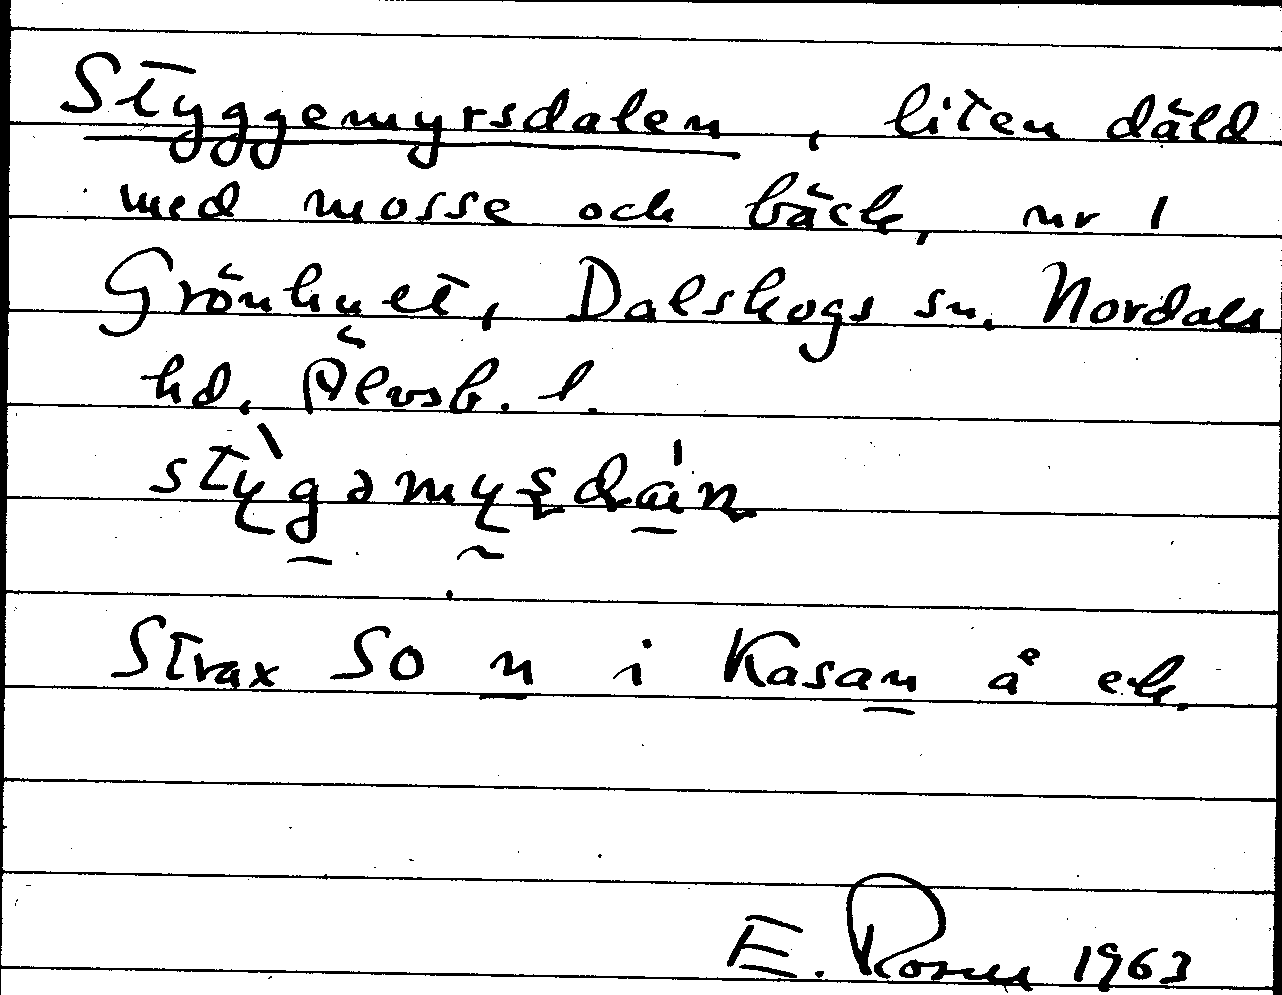 Styggemyrsdalen, liten däld
med mosse och bäck, nr 1
Grönhult, Dalskogs sn. Nordals
hd. Älvsb. l.
Strax SO n i Kasan å ek.
E. Rosen 1963